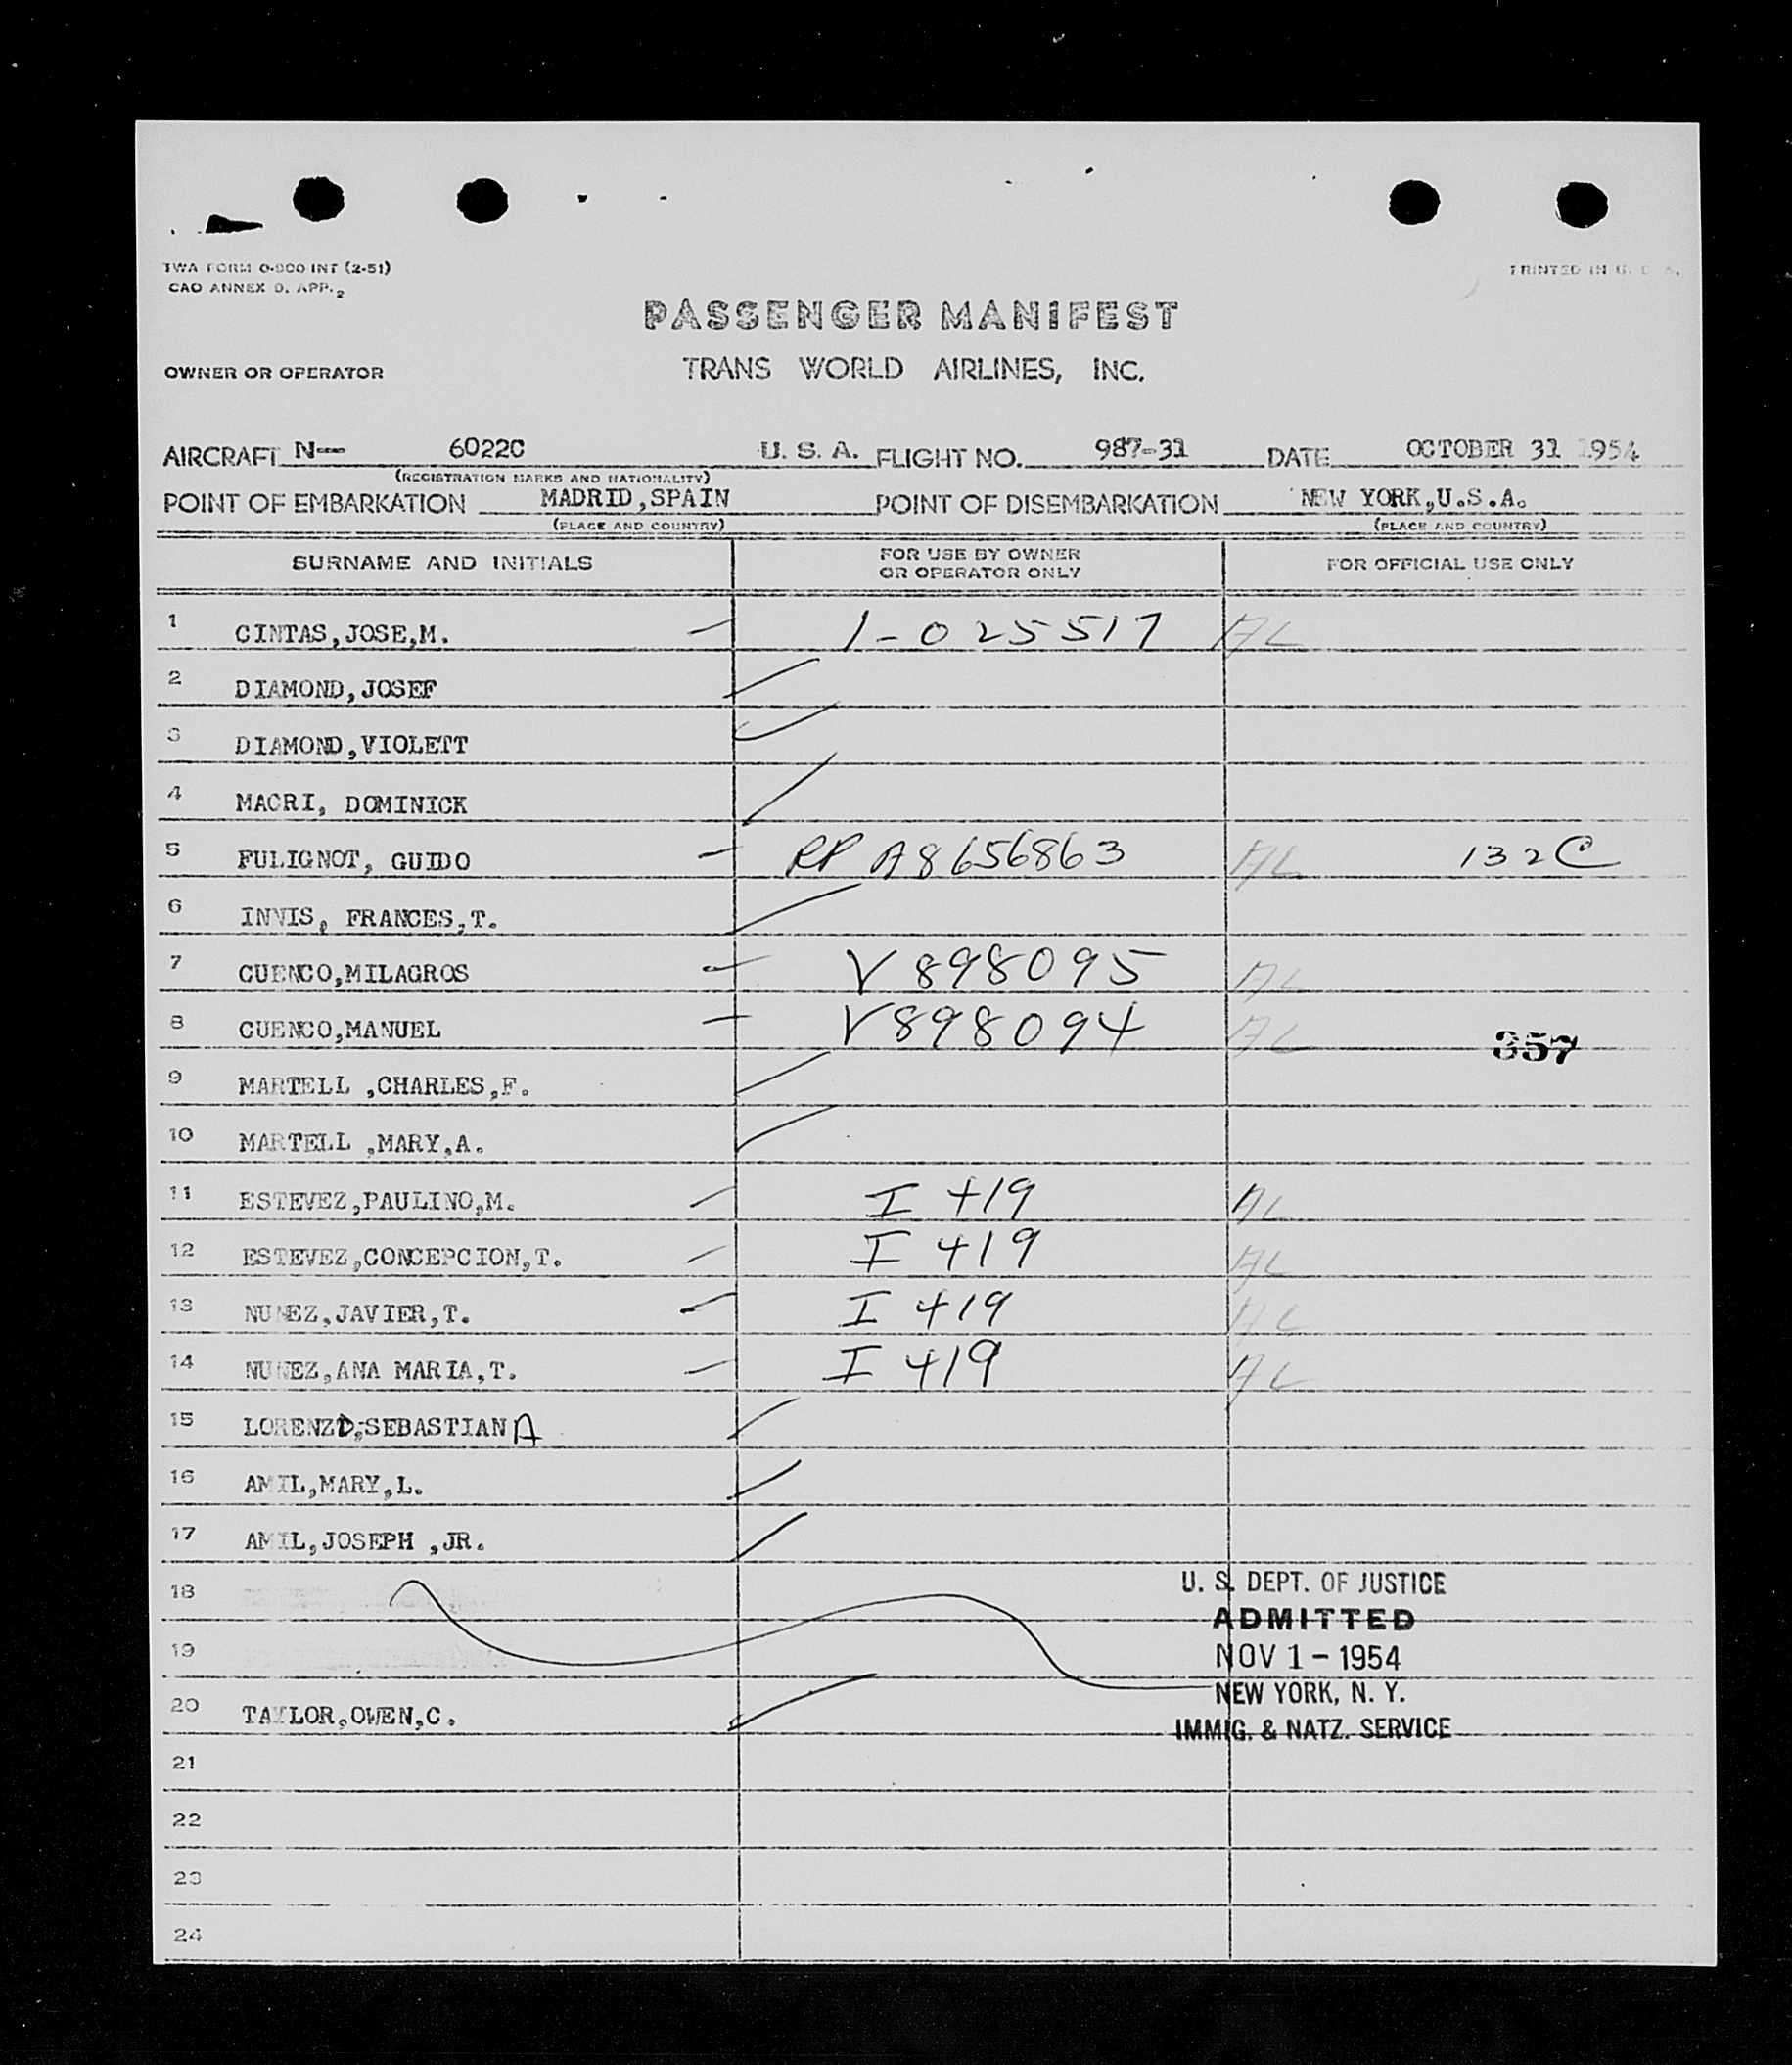 TWA FORM O-900 INT (2-51)
CAO ANNEX 9. APP. 2
PRINTED IN U. S. A.
PASSENGER MANIFEST
OWNER OR OPERATOR
TRANS WORLD AIRLINES, INC.
AIRCRAFT N-- 6022C U. S. A. FLIGHT NO. 987-31 DATE OCTOBER 31 1954
(REGISTRATION MARKS AND NATIONALITY)
POINT OF EMBARKATION MADRID,SPAIN POINT OF DISEMBARKATION NEW YORK,U.S.A.
(PLACE AND COUNTRY) (PLACE AND COUNTRY)
SURNAME AND INITIALS FOR USE BY OWNER OR OPERATOR ONLY FOR OFFICIAL USE ONLY
1 CINTAS,JOSE,M. 1-025517 AL
2 DIAMOND,JOSEF
3 DIAMOND,VIOLETT
4 MACRI, DOMINICK
5 FULIGNOT, GUIDO RP A8656863 AL 132C
6 INVIS, FRANCES,T.
7 CUENCO,MILAGROS V898095 AL
8 CUENCO,MANUEL V898094 AL 357
9 MARTELL ,CHARLES,F.
10 MARTELL ,MARY,A.
11 ESTEVEZ,PAULINO,M. I 419 AL
12 ESTEVEZ,CONCEPCION,T. I 419 AL
13 NUNEZ,JAVIER,T. I 419 AL
14 NUNEZ,ANA MARIA,T. I 419 AL
15 LORENZO,SEBASTIAN A
16 AMIL,MARY,L.
17 AMIL,JOSEPH ,JR.
18 U. S. DEPT. OF JUSTICE
ADMITTED
19 NOV 1 - 1954
NEW YORK, N. Y.
20 TAYLOR,OWEN,C. IMMIG. & NATZ. SERVICE
21
22
23
24